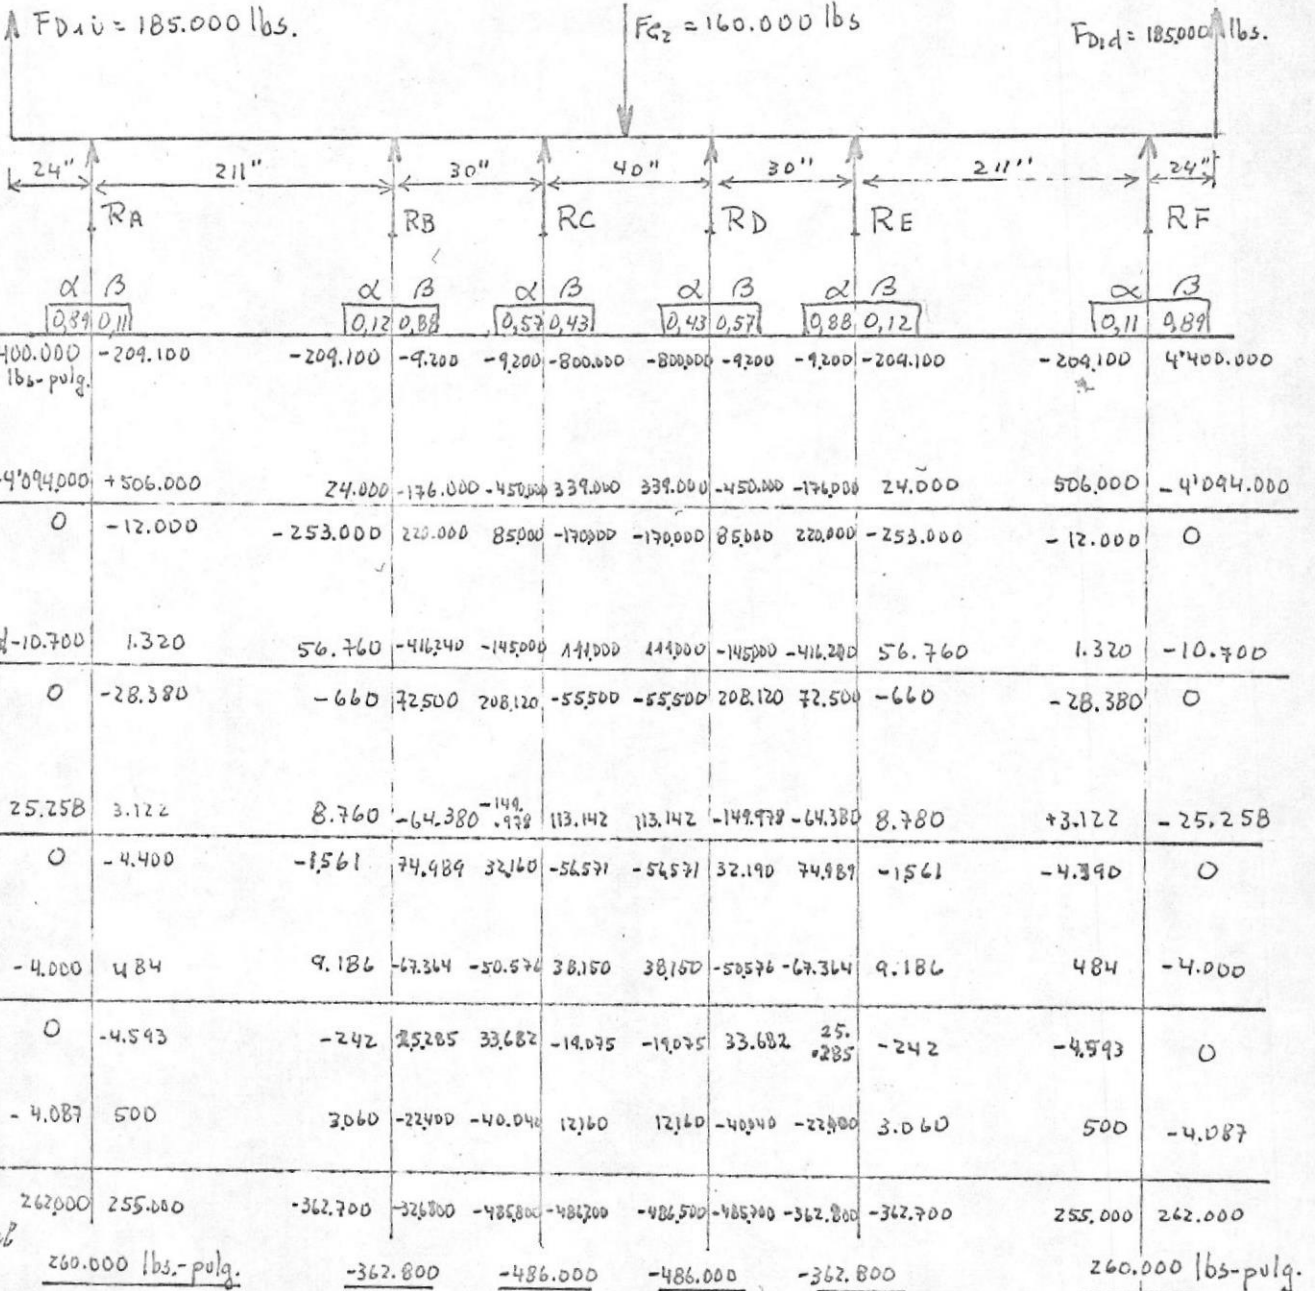 FD1i = 185.000 lbs. FG2 = 160.000 lbs FD1d = 185.000 lbs.
24" 211" 30" 40" 30" 211" 24"
RA RB RC RD RE RF
α β α β α β α β α β α β
0,89 0,11 0,12 0,88 0,57 0,43 0,43 0,57 0,88 0,12 0,11 0,89
400.000 -209.100 -209.100 -9.200 -9200 -800.000 -800.000 -9200 -9.200 -209.100 -209.100 4'400.000
lbs-pulg.
-4'094.000 +506.000 24.000 -176.000 -450.000 339.000 339.000 -450.000 -176.000 24.000 506.000 -4'094.000
0 -12.000 -253.000 220.000 85000 -170000 -170,000 85.000 220.000 -253.000 -12.000 0
-10.700 1.320 56.760 -416240 -145000 111,000 111,000 -145000 -416.240 56.760 1.320 -10.700
0 -28.380 -660 72500 208.120 -55500 -55,500 208.120 72.500 -660 -28.380 0
25.258 3.122 8.760 -64.380 -149.978 113.142 113.142 -149.978 -64.380 8.780 +3.122 -25.258
0 -4.400 -1,561 74.989 32,160 -56,571 -56,571 32.190 74.989 -1,561 -4.390 0
-4.000 484 9.186 -67.364 -50.576 38,150 38,150 -50,576 -67.364 9.186 484 -4.000
0 -4.593 -242 25.285 33,682 -19.075 -19,075 33.682 25.285 -242 -4,593 0
-4.087 500 3.060 -22400 -40.040 12,160 12,160 -40,040 -22,400 3.060 500 -4.087
262000 255.000 -362.700 -326800 -485.800 -486,200 -486,500 -485,700 -362.800 -362.700 255.000 262.000
260.000 lbs.-pulg. -362.800 -486.000 -486.000 -362.800 260.000 lbs-pulg.